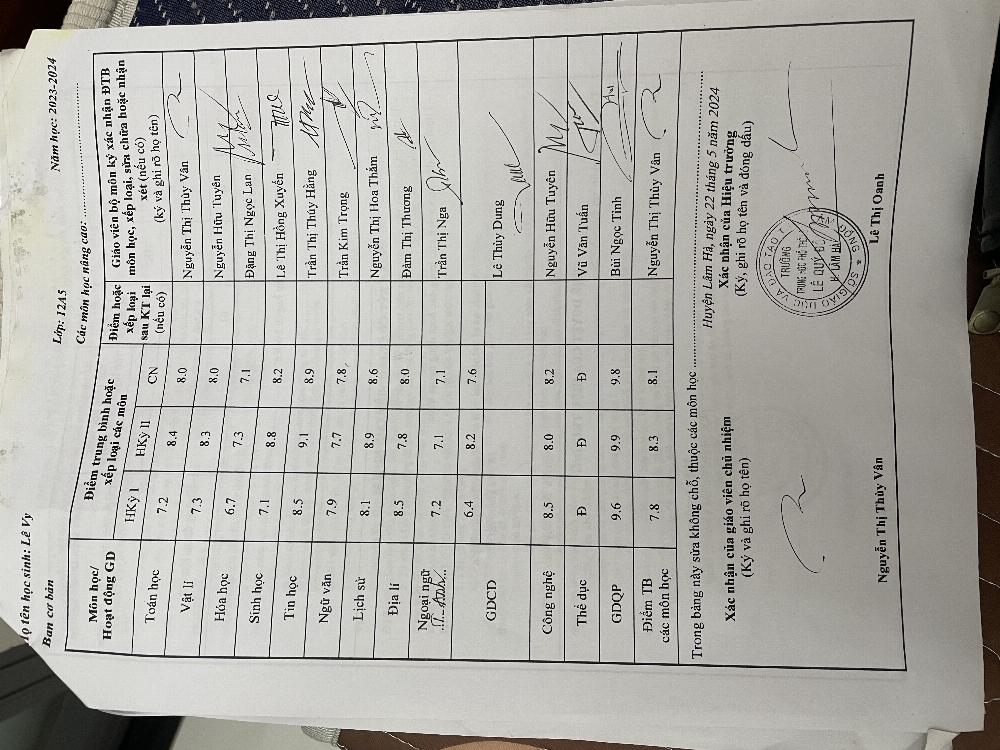 Họ tên học sinh: Lê Vy Lớp: 12A5 Năm học: 2023-2024
Ban cơ bản Các môn học nâng cao:
Môn học/ Hoạt động GD
Điểm trung bình hoặc xếp loại các môn
HKỳ I HKỳ II CN
Điểm hoặc xếp loại sau KT lại (nếu có)
Giáo viên bộ môn ký xác nhận ĐTB môn học, xếp loại, sửa chữa hoặc nhận xét (nếu có) (ký và ghi rõ họ tên)
Toán học 7.2 8.4 8.0 Nguyễn Thị Thùy Vân
Vật lí 7.3 8.3 8.0 Nguyễn Hữu Tuyên
Hóa học 6.7 7.3 7.1 Đặng Thị Ngọc Lan
Sinh học 7.1 8.8 8.2 Lê Thị Hồng Xuyên
Tin học 8.5 9.1 8.9 Trần Thị Thúy Hằng
Ngữ văn 7.9 7.7 7.8 Trần Kim Trọng
Lịch sử 8.1 8.9 8.6 Nguyễn Thị Hoa Thắm
Địa lí 8.5 7.8 8.0 Đàm Thị Thương
Ngoại ngữ 7.2 7.1 7.1 Trần Thị Nga
T. Anh
GDCD 6.4 8.2 7.6 Lê Thùy Dung
Công nghệ 8.5 8.0 8.2 Nguyễn Hữu Tuyên
Thể dục Đ Đ Đ Vũ Văn Tuấn
GDQP 9.6 9.9 9.8 Bùi Ngọc Tình
Điểm TB các môn học 7.8 8.3 8.1 Nguyễn Thị Thùy Vân
Trong bảng này sửa không chỗ, thuộc các môn học
Huyện Lâm Hà, ngày 22 tháng 5 năm 2024
Xác nhận của giáo viên chủ nhiệm
(Ký và ghi rõ họ tên)
Xác nhận của Hiệu trưởng
(Ký, ghi rõ họ tên và đóng dấu)
SỞ GIÁO DỤC VÀ ĐÀO TẠO
TRƯỜNG
TRUNG HỌC PHỔ THÔNG
LÊ QUÝ ĐÔN
LÂM HÀ
Nguyễn Thị Thùy Vân
Lê Thị Oanh